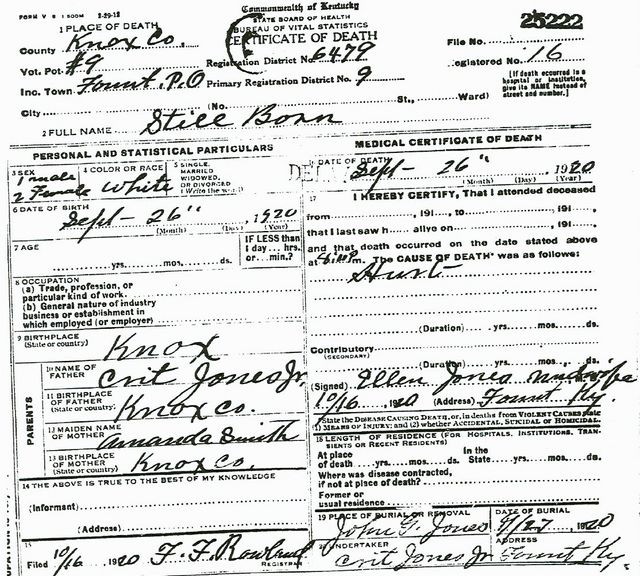 FORM V S 1 500M 2-29-12
Commonwealth of Kentucky
STATE BOARD OF HEALTH
BUREAU OF VITAL STATISTICS
CERTIFICATE OF DEATH
25222
1 PLACE OF DEATH
County Knox Co.
Vot. Pct. #9
Registration District No. 6479
File No.
Inc. Town Fount. P.O
Primary Registration District No. 9
Registered No. 16
City (No. St., Ward)
[If death occurred in a
hospital or institution,
give its NAME instead of
street and number.]
2 FULL NAME Still Born
PERSONAL AND STATISTICAL PARTICULARS
3 SEX
1 male
2 Female
4 COLOR OR RACE
White
5 SINGLE,
MARRIED
WIDOWED,
OR DIVORCED
(Write the word)
6 DATE OF BIRTH
Sept - 26" 1920
(Month) (Day) (Year)
7 AGE
yrs. mos. ds.
IF LESS than
1 day... hrs.
or... min.?
8 OCCUPATION
(a) Trade, profession, or
particular kind of work.
(b) General nature of industry
business or establishment in
which employed (or employer)
9 BIRTHPLACE
(State or country) Knox
PARENTS
10 NAME OF
FATHER Crit Jones Jr.
11 BIRTHPLACE
OF FATHER
(State or country) Knox co.
12 MAIDEN NAME
OF MOTHER Amanda Smith
13 BIRTHPLACE
OF MOTHER
(State or country) Knox Co,
14 THE ABOVE IS TRUE TO THE BEST OF MY KNOWLEDGE
(Informant)
(Address)
15
Filed 10/16 1920 F. F. Rowland
REGISTRAR
MEDICAL CERTIFICATE OF DEATH
DATE OF DEATH
Sept - 26" 1920
(Month) (Day) (Year)
17 I HEREBY CERTIFY, That I attended deceased
from , 191 , to , 191 ,
that I last saw h alive on , 191 ,
and that death occurred on the date stated above
at m. The CAUSE OF DEATH* was as follows:
Hurt
(Duration) yrs. mos. ds.
Contributory
(SECONDARY)
(Duration) yrs. mos. ds.
(Signed) Ellen Jones
10/16 1920 (Address) Fount Ky.
*State the DISEASE CAUSING DEATH, or, in deaths from VIOLENT CAUSES, state
(1) MEANS OF INJURY; and (2) whether ACCIDENTAL, SUICIDAL or HOMICIDAL.
18 LENGTH OF RESIDENCE (FOR HOSPITALS, INSTITUTIONS, TRAN-
SIENTS OR RECENT RESIDENTS)
At place In the
of death yrs. mos. ds. State yrs. mos. ds.
Where was disease contracted,
if not at place of death?
Former or
usual residence
19 PLACE OF BURIAL OR REMOVAL
John G. Jones
DATE OF BURIAL
9/27 1920
UNDERTAKER
Crit Jones Jr
ADDRESS
Fount Ky.